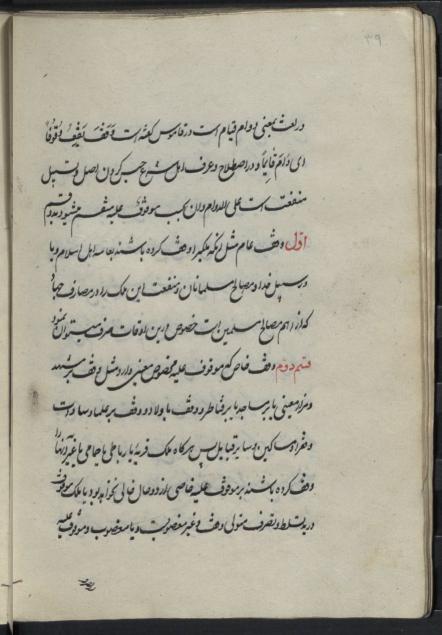 ۳۹
در لغت بمعنی دوام قیام است در قاموس گفته است وَقَفَ یَقِفُ وُقُوفاً
ای دَامَ قَائِماً و در اصطلاح و عرف اهل شرع حبس کردن اصل و تسبیل
منفعت است علی الدوام و ان بحسب موقوف علیه منقسم میشود بدو قسم
اوّل وقف عام مثل انکه ملکیرا وقف کرده باشند بعامه اهل اسلام و یا
در سبیل خدا و مصالح مسلمانان و منفعت این ملک را در مصارف جهاد
که از اهم مصالح مسلمین است خصوص در این اوقات صرف میتوان نمود
قسم دوم وقف خاص که موقوف علیه مخصوص معینی دارد مثل وقف بر مشهد
و مزار معینی یا بر مساجد یا بر قناطر و وقف باولاد و وقف بر علما و سادات
و فقرا و مساکین و سایر قبایل پس هرگاه ملک قریهٔ یا رباطی یا حمامی یا غیر انها را
وقف کرده باشند بر موقوف علیه خاصی از دو حال خالی نخواهد بود یا ملک موقوف
در ید تسلط و تصرف متولی وقف و غیر مغصوبست و یا مغصوب و موقوف علیه